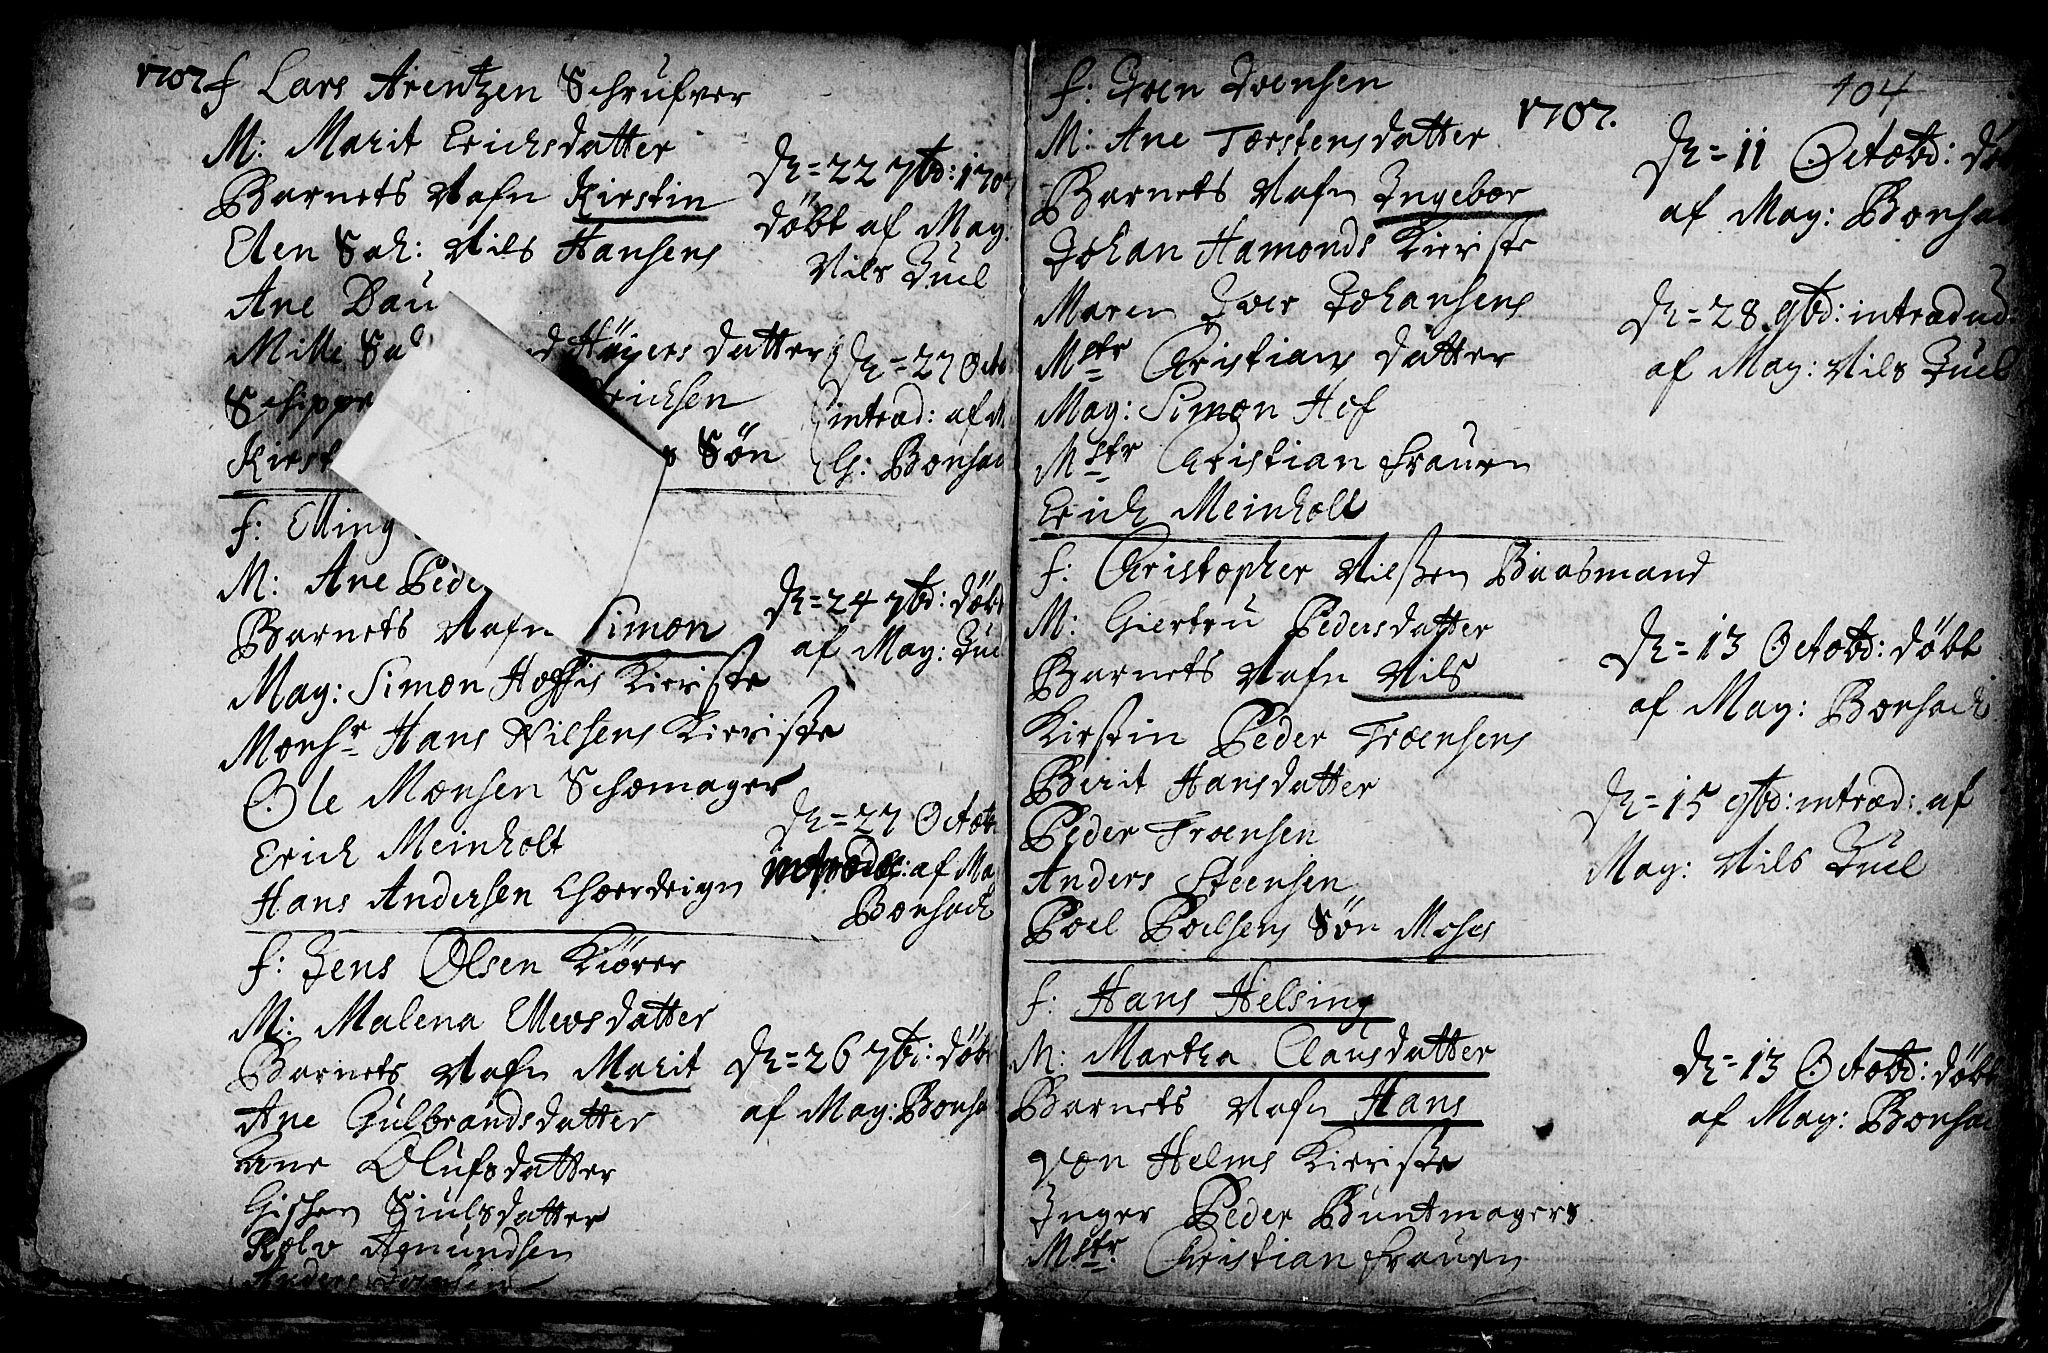 1707 f Lars Arentzen Schrufver
M: Marit Erichsdatter
Barnets Nafn Kirstin
Elen Sal: Nils Hansens
Ane Dau
Mille Sal Höyers datter
Schippe Erichsen
Kirst Sön
D= 22 7bd: 1707
döbt af Mag:
Nils Juel
D= 27 Octo
introd: af M
Ch: Bonsach
f: Elling
M: Ane Peder
Barnets Nafn Simon
Mag: Simon Hoffis Kieriste
Monsr Hans Nilsens Kieriste
Ole Monsen Schomager
Erich Meinholt
Hans Andersen Choerdeign
D= 24 7bd: döbt
af Mag: Juel
D= 27 Octob
introd: af Ma
Bonsach
f: Jens Olsen Kiörer
M: Malena Ellevsdatter
Barnets Nafn Marit
Ane Gulbrandsdatter
Ane Olufsdatter
Siulsdatter
Rolv Amundsen
Anders
D= 26 7bd: döbt
af Mag: Bonsa
104
1707.
f: Iven Ivensen
M: Ane Torstensdatter
Barnets Nafn Ingebor
Johan Hamonds Kieriste
Maren Iver Johansens
Mstr Christians datter
Mag: Simon Hof
Mstr Christian Frauen
Erich Meinholt
D= 11 Octobd: döb
af Mag: Bonsac
D= 28 9bd: introdud:
af Mag: Nils Juel
f: Christopher Nilssen Baasmand
M: Giertru Pedersdatter
Barnets Nafn Nils
Kirstin Peder Troensens
Berit Hansdatter
Peder Troensen
Anders Steensen
Poel Poelsens Sön Moses
D= 13 Octobd: döbt
af Mag: Bonsach
D= 15 9bd: introd: af
Mag: Nils Juel
f: Hans Helsing
M: Martha Clausdatter
Barnets Nafn Hans
von Helms Kieriste
Inger Peder Buntmagers
Mstr. Christian Frauen
D= 13 Octobd: döbt
af Mag: Bonsac